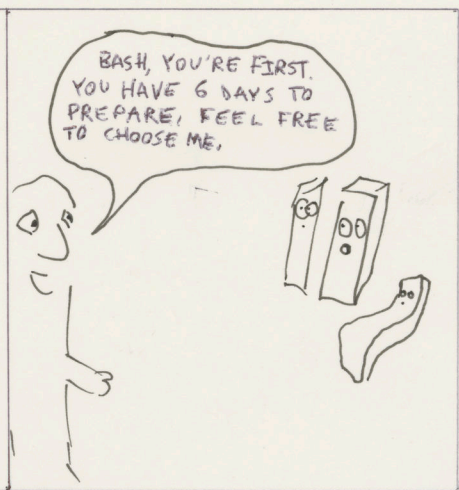 BASH, YOU'RE FIRST.
YOU HAVE 6 DAYS TO
PREPARE, FEEL FREE
TO CHOOSE ME.